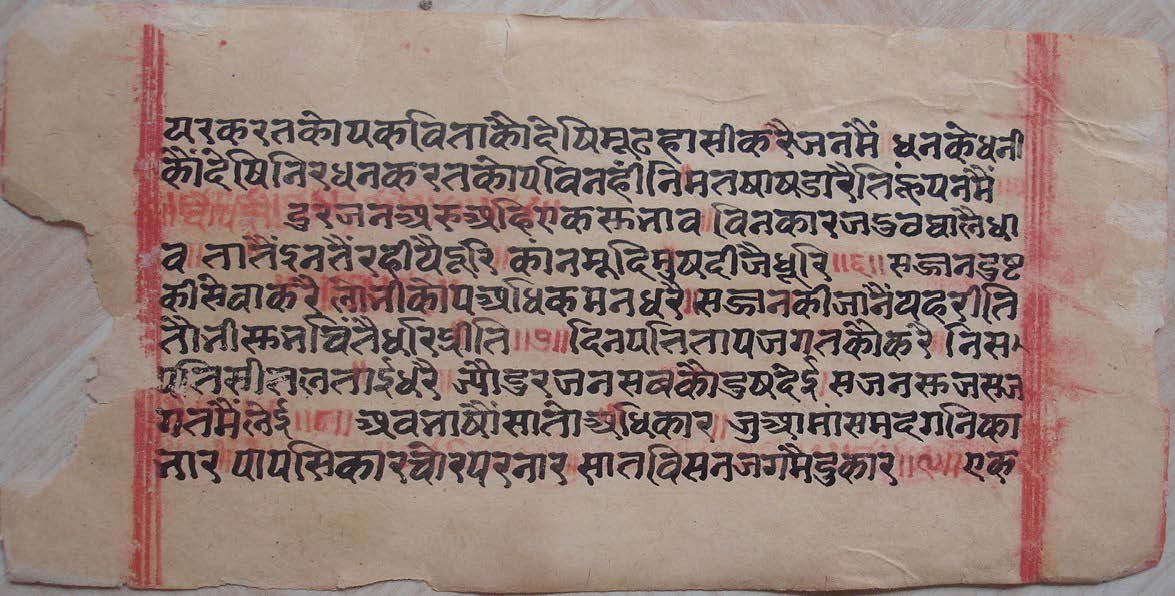 यरकरतकोपकविताकौंदेषिमूढहासीकरैजनमैं धनकेधनी
कौंदेषिनिरधनकरतकोपविनहीनिमतषाषडारैति पनमैं
डुरजनअरुअहिएकसुनाव विनकारजडुवघालैधा
व तातैंइनतैंरहीयैदूरि कानमूदिमुषदीजैधूरि ॥६॥ सज्जनडुष्ट
कीसेवाकरै लोनीकोपअधिकमनधरै सज्जनकीजांनैंयहरीति
तौनीसुनाविंतैधरिप्रीति ॥७॥ दिनपतितापजगतकौकरै निस
पतिसीतलताईधरै ज्यौडुरजनसबकौडुषदेई सजनसुजसज
गतमैंलेई ॥८॥ अवनाषौंसातौंअधिकार जुआमांसमदगनिका
नार पापसिकारचोरपरनार सातविसनजगमैंडुकार ॥९॥ एक